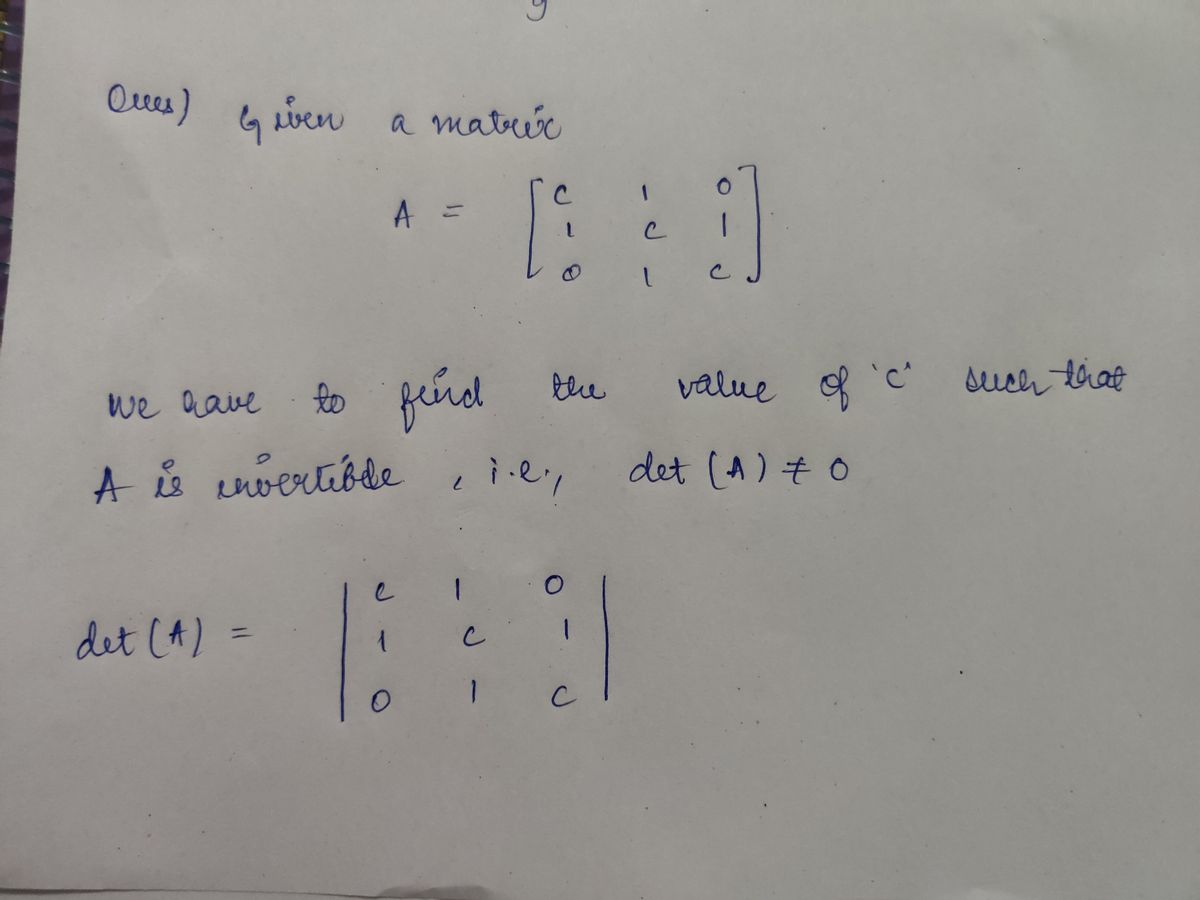 Ques) Given a matrix
A = [ c 1 0
1 c 1
0 1 c ]
we have to find the value of 'c' such that
A is invertible , i.e., det (A) ≠ 0
det (A) = | c 1 0
1 c 1
0 1 c |